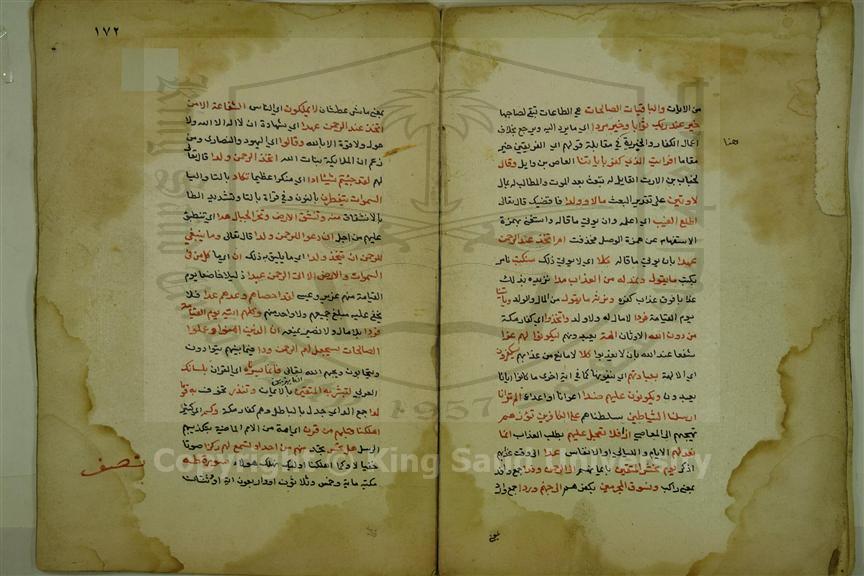 من الايات والباقيات الصالحات هي الطاعات تبقى لصاحبها
خير عند ربك ثوابا وخير مردا اي ما يرد اليه ويرجع بخلاف
اعمال الكفار والخيرية في مقابلة قولهم اي الفريقين خير
هنا
مقاما افرايت الذي كفر باياتنا العاص بن وايل وقال
لخباب بن الارث القايل له تبعث بعد الموت والمطالب له بمال
لاوتين على تقدير البعث مالا وولدا فاقضيك قال تعالى
اطلع الغيب اي اعلمه وان يوتى ما قاله واستغني بهمزة
الاستفهام عن همزة الوصل فحذفت ام اتخذ عند الرحمن
عهدا بان يوتى ما قاله كلا اي لا يوتى ذلك سنكتب نامر
بكتب ما يقول ونمد له من العذاب مدا نزيده بذلك
عذابا فوق عذاب كفره ونرثه ما يقول من المال والولد وياتينا
يوم القيامة فردا لا مال له ولا ولد واتخذوا اي كفار مكة
من دون الله الاوثان الهة يعبدونهم ليكونوا لهم عزا
شفعا عند الله بان لا يعذبوا كلا لا مانع من عذابهم سيكفرون
اي الالهة بعبادتهم اي ينفونها كما في اية اخرى ما كانوا ايانا
يعبدون ويكونون عليهم ضدا اعوانا واعداء الم تر انا
ارسلنا الشياطين سلطناهم على الكافرين تؤزهم
تهيجهم الى المعاصي ازا فلا تعجل عليهم بطلب العذاب انما
نعد لهم الايام والليالي والانفاس عدا الى وقت عذابهم
اذكر يوم نحشر المتقين بايمانهم الى الرحمن وفدا جمع وافد
بمعنى راكب ونسوق المجرمين بكفرهم الى جهنم وردا جمع وارد
١٧٢
بمعنى ماشي عطشان لا يملكون اي الناس الشفاعة الا من
اتخذ عند الرحمن عهدا اي شهادة ان لا اله الا الله ولا
حول ولا قوة الا بالله وقالوا اي اليهود والنصارى ومن
زعم ان الملايكة بنات الله اتخذ الرحمن ولدا قال تعالى
لهم لقد جئتم شيئا ادا اي منكرا عظيما تكاد بالتا واليا
السموات يتفطرن بالنون وفي قراة بالتا وتشديد الطا
بالانشقاق منه وتنشق الارض وتخر الجبال هدا اي تنطبق
عليهم من اجل ان دعوا للرحمن ولدا قال تعالى وما ينبغي
للرحمن ان يتخذ ولدا اي ما يليق به ذلك ان اي ما كل من في
السموات والارض الا اتى الرحمن عبدا ذليلا خاضعا يوم
القيامة منهم عزير وعيسى لقد احصاهم وعدهم عدا فلا
يخفى عليه مبلغ جميعهم ولا واحد منهم وكلهم اتيه يوم القيامة
فردا بلا مال ولا نصير يمنعه ان الذين امنوا وعملوا
الصالحات سيجعل لهم الرحمن ودا فيما بينهم يتوادون
ويتحابون ويحبهم الله تعالى فانما يسرناه اي القران بلسانك
العربي لتبشر به المتقين بالايمان وتنذر تخوف به قوما
لدا جمع الد اي جدل بالباطل وهم كفار مكة وكم اي كثيرا
اهلكنا قبلهم من قرن اي امة من الامم الماضية بتكذيبهم
الرسل هل تحس تجد منهم من احد او تسمع لهم ركزا صوتا
نصف
خفيا لا وكما اهلكنا اوليك نهلك هولاء سورة طه
مكية ماية وخمس وثلاثون اية او اربعون اية او وثنتان
Copyright © King Saud University
1957